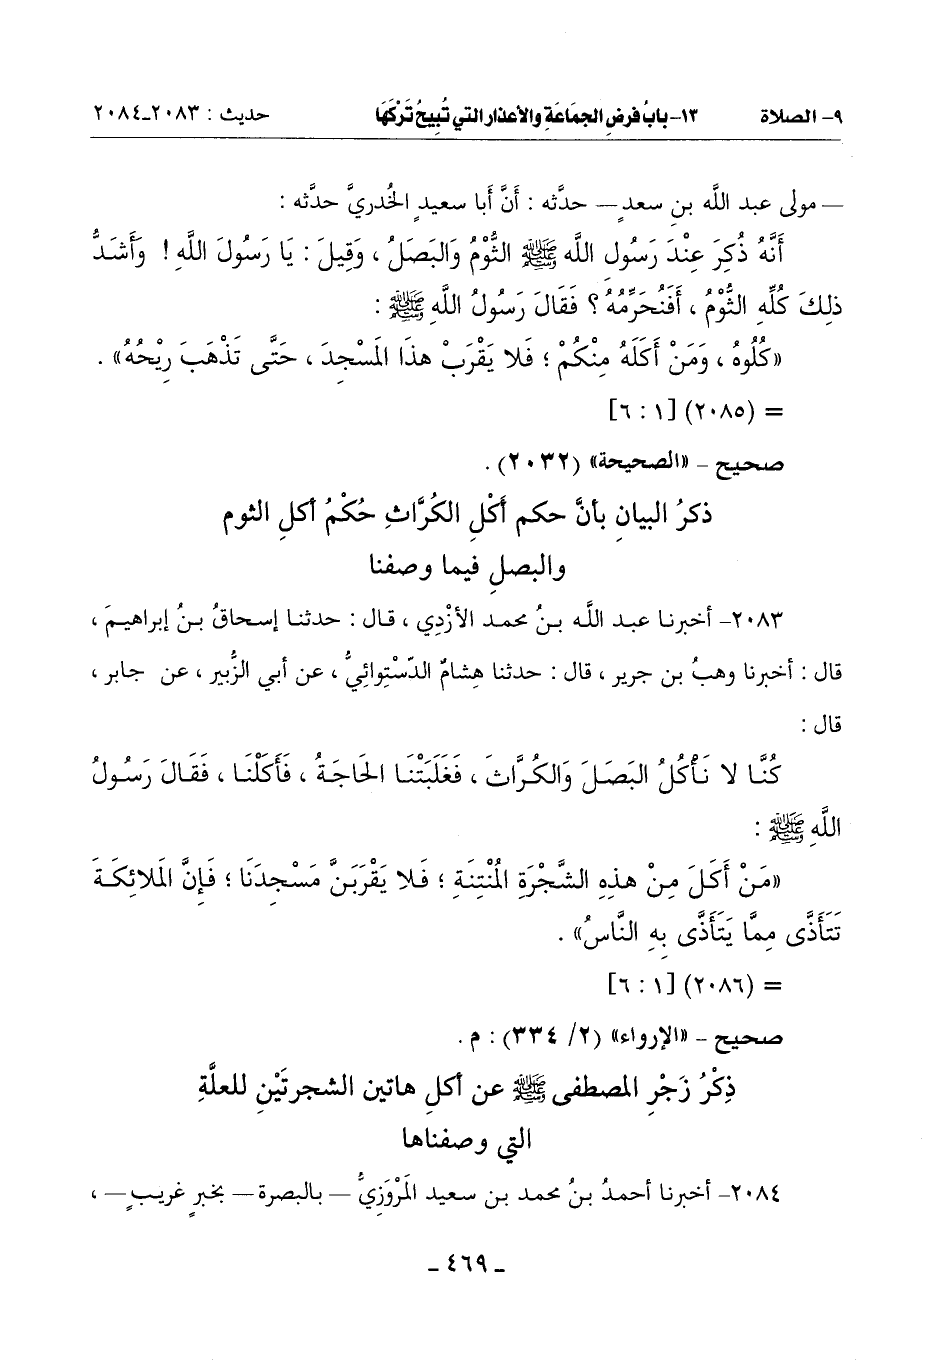 ٩- الصلاة ١٣- بابُ فرضِ الجمَاعَةِ والأعذار التي تُبيحُ تَرْكَهَا حديث : ٢٠٨٣-٢٠٨٤
— مولى عبد اللَّه بن سعدٍ — حدَّثه : أنَّ أبا سعيدٍ الخُدريَّ حدَّثه :
أَنَّهُ ذُكِرَ عِنْدَ رَسُول اللَّه ﷺ الثُّوْمُ وَالبَصَلُ ، وَقِيلَ : يَا رَسُولَ اللَّهِ ! وَأَشَدُّ
ذلِكَ كُلِّهِ الثُّوْمُ ، أَفَنُحَرِّمُهُ ؟ فَقَالَ رَسُولُ اللَّهِ ﷺ :
«كُلُوهُ ، وَمَنْ أَكَلَهُ مِنْكُمْ ؛ فَلا يَقْرَبْ هذَا المَسْجِدَ ، حَتَّى تَذْهَبَ رِيْحُهُ» .
= (٢٠٨٥) [١ : ٦]
صحيح - «الصحيحة» (٢٠٣٢) .
ذكرُ البيانِ بأنَّ حكم أَكْلِ الكُرَّاثِ حُكْمُ أكلِ الثوم
والبصلِ فيما وصفنا
٢٠٨٣- أخبرنا عبد اللَّه بنُ محمد الأزْدِي ، قال : حدثنا إسحاقُ بنُ إبراهيمَ ،
قال : أخبرنا وهبُ بن جرير ، قال : حدثنا هِشامٌ الدّسْتِوائيُّ ، عن أبي الزُّبير ، عن جابر ،
قال :
كُنَّا لا نَأْكُلُ البَصَلَ وَالكُرَّاثَ ، فَغَلَبَتْنَا الحَاجَةُ ، فَأَكَلْنَا ، فَقَالَ رَسُولُ
اللَّهِ ﷺ :
«مَنْ أَكَلَ مِنْ هذِهِ الشَّجْرَةِ المُنْتِنَةِ ؛ فَلا يَقْرَبَنَّ مَسْجِدَنَا ؛ فَإِنَّ المَلائِكَةَ
تَتَأَذَّى مِمَّا يَتَأَذَّى بِهِ النَّاسُ» .
= (٢٠٨٦) [١ : ٦]
صحيح - «الإرواء» (٢/ ٣٣٤) : م .
ذِكْرُ زَجْرِ المصطفى ﷺ عن أكلِ هاتين الشجرتَيْنِ للعلَّةِ
التي وصفناها
٢٠٨٤- أخبرنا أحمدُ بنُ محمد بن سعيد المَرْوَزِيُّ — بالبصرة — بخبرٍ غريبٍ — ،
- ٤٦٩ -